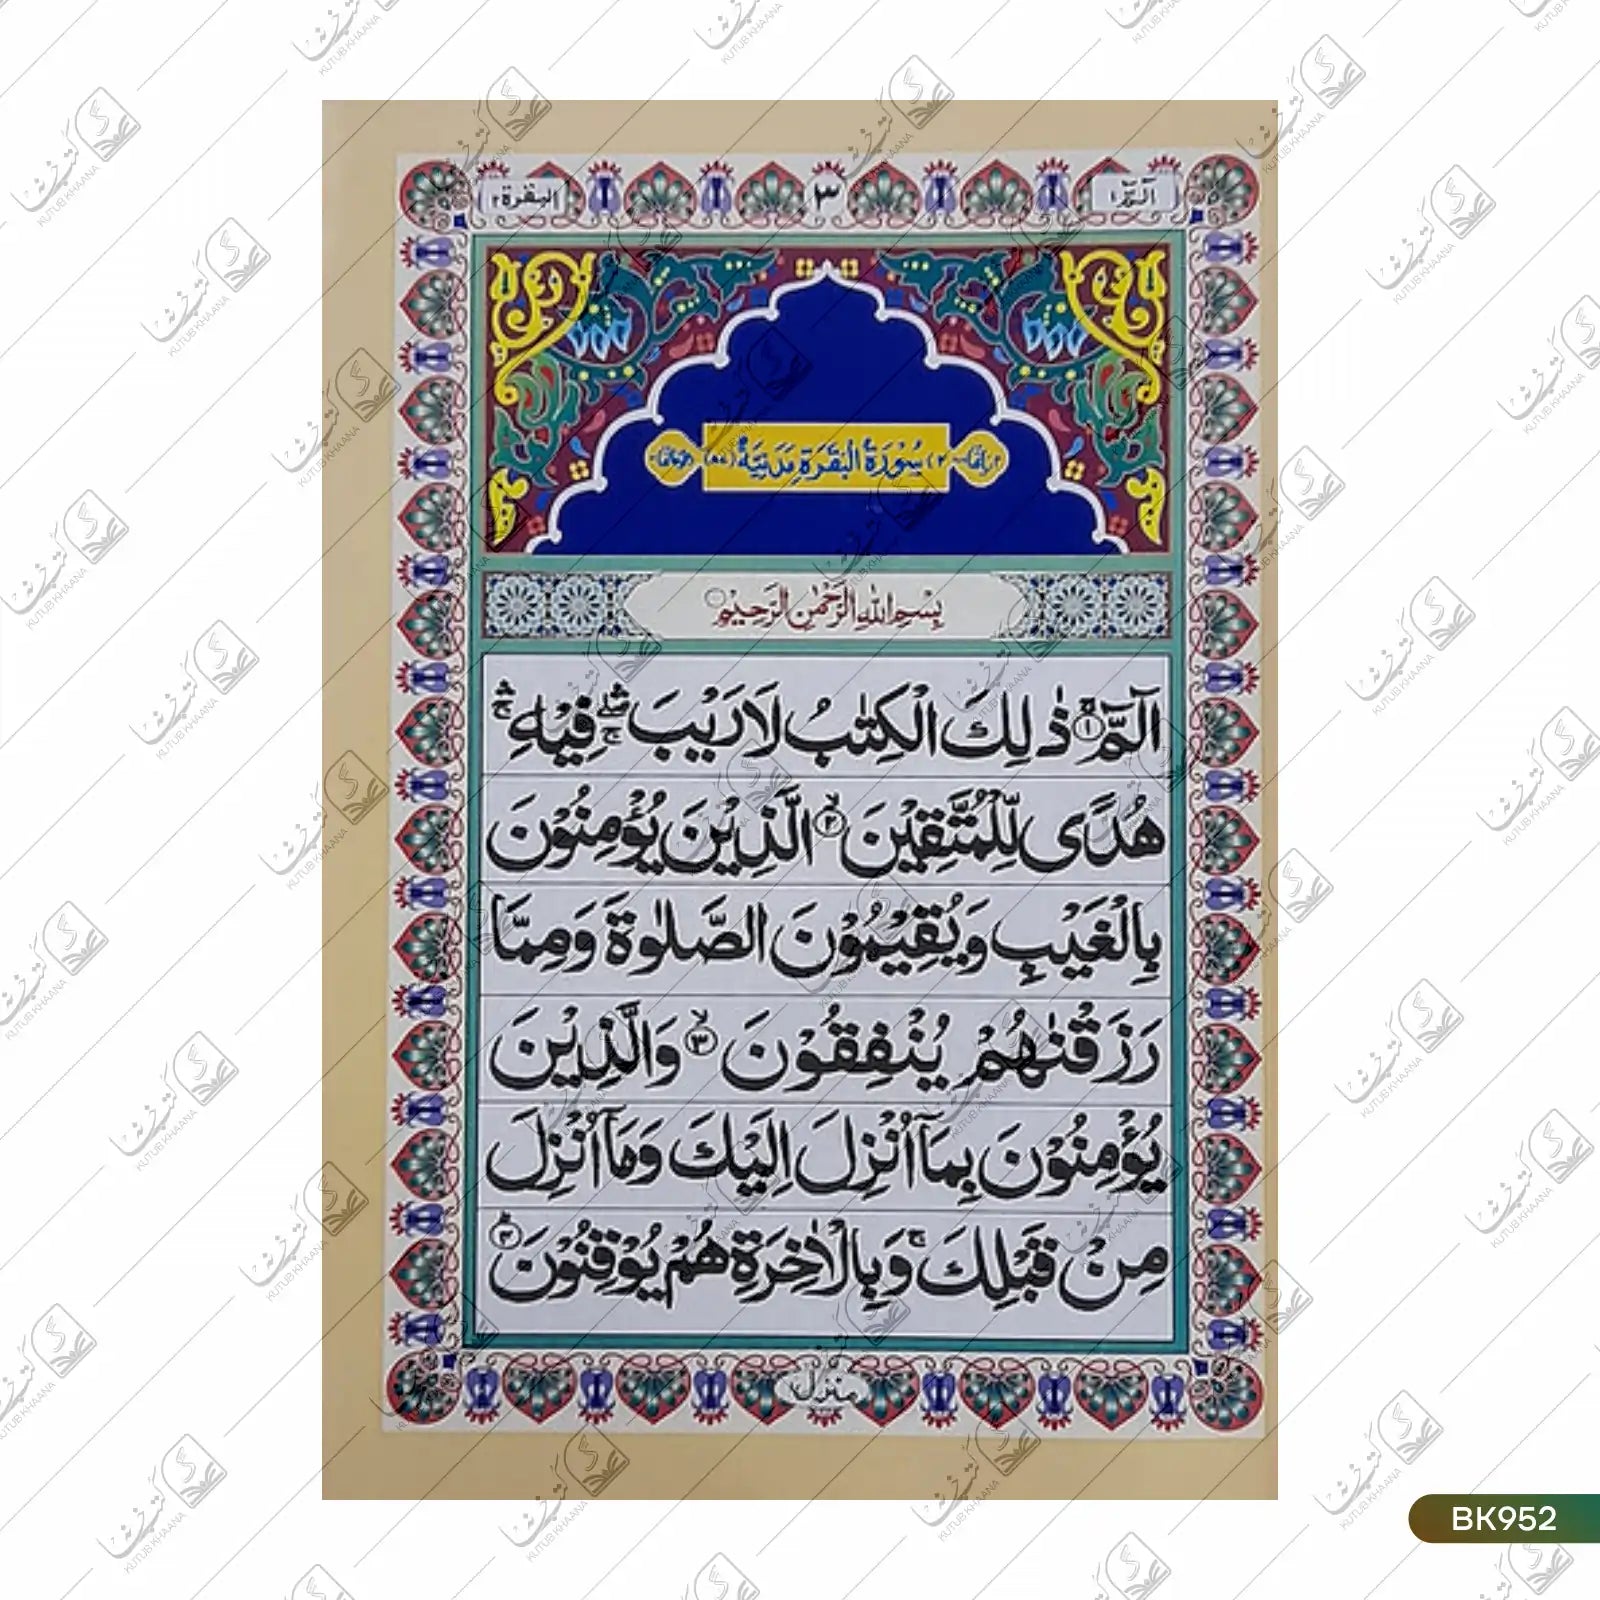 الٓمّٓ ١
٣
البقرة ٢
سُوْرَةُ الْبَقَرَةِ مَدَنِيَّةٌ
بِسْمِ اللّٰهِ الرَّحْمٰنِ الرَّحِيْمِ
الٓمّٓ ۚ﴿۱﴾ ذٰلِكَ الْكِتٰبُ لَا رَيْبَ ۛۖۚ فِيْهِ ۛۚ
هُدًى لِّلْمُتَّقِيْنَ ۙ﴿۲﴾ الَّذِيْنَ يُؤْمِنُوْنَ
بِالْغَيْبِ وَيُقِيْمُوْنَ الصَّلٰوةَ وَمِمَّا
رَزَقْنٰهُمْ يُنْفِقُوْنَ ۙ﴿۳﴾ وَالَّذِيْنَ
يُؤْمِنُوْنَ بِمَاۤ اُنْزِلَ اِلَيْكَ وَمَاۤ اُنْزِلَ
مِنْ قَبْلِكَ ۚ وَبِالْاٰخِرَةِ هُمْ يُوْقِنُوْنَ ؕ﴿۴﴾
منزل
BK952
کتب خانہ
KUTUB KHAANA